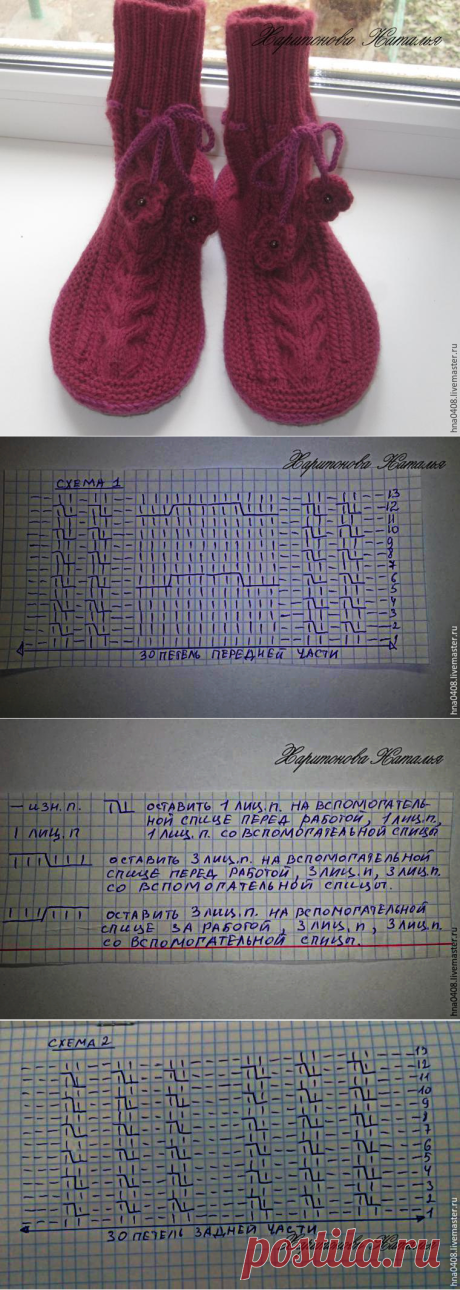 Харитонова Наталья
hna0408.livemaster.ru
Харитонова Наталья
СХЕМА 1
13
12
11
10
9
8
7
6
5
4
3
2
1
30 ПЕТЕЛЬ ПЕРЕДНЕЙ ЧАСТИ
hna0408.livemaster.ru
Харитонова Наталья
— ИЗН. П. ОСТАВИТЬ 1 ЛИЦ. П. НА ВСПОМОГАТЕЛЬ-
НОЙ СПИЦЕ ПЕРЕД РАБОТОЙ, 1 ЛИЦ. П.,
| ЛИЦ. П 1 ЛИЦ. П. СО ВСПОМОГАТЕЛЬНОЙ СПИЦЫ
ОСТАВИТЬ 3 ЛИЦ. П. НА ВСПОМОГАТЕЛЬНОЙ
СПИЦЕ ПЕРЕД РАБОТОЙ, 3 ЛИЦ. П, 3 ЛИЦ. П.
СО ВСПОМОГАТЕЛЬНОЙ СПИЦЫ.
ОСТАВИТЬ 3 ЛИЦ. П. НА ВСПОМОГАТЕЛЬНОЙ
СПИЦЕ ЗА РАБОТОЙ, 3 ЛИЦ. П, 3 ЛИЦ. П.
СО ВСПОМОГАТЕЛЬНОЙ СПИЦЫ.
hna0408.livemaster.ru
СХЕМА 2
13
12
11
10
9
8
7
6
5
4
3
2
1
30 ПЕТЕЛЬ ЗАДНЕЙ ЧАСТИ
Харитонова Наталья
hna0408.livemaster.ru
postila.ru